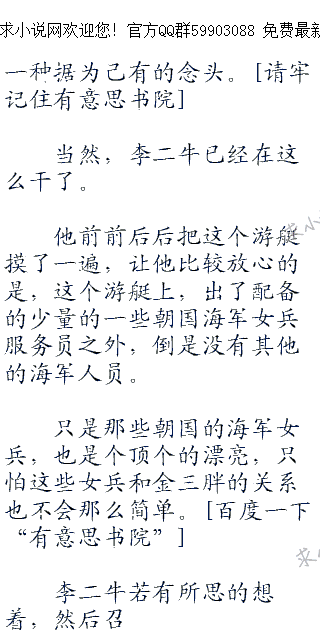 求小说网欢迎您! 官方QQ群59903088 免费最新
一种据为己有的念头。[请牢
记住有意思书院]
当然，李二牛已经在这
么干了。
他前前后后把这个游艇
摸了一遍，让他比较放心的
是，这个游艇上，出了配备
的少量的一些朝国海军女兵
服务员之外，倒是没有其他
的海军人员。
只是那些朝国的海军女
兵，也是个顶个的漂亮，只
怕这些女兵和金三胖的关系
也不会那么简单。[百度一下
“有意思书院”]
李二牛若有所思的想
着，然后召